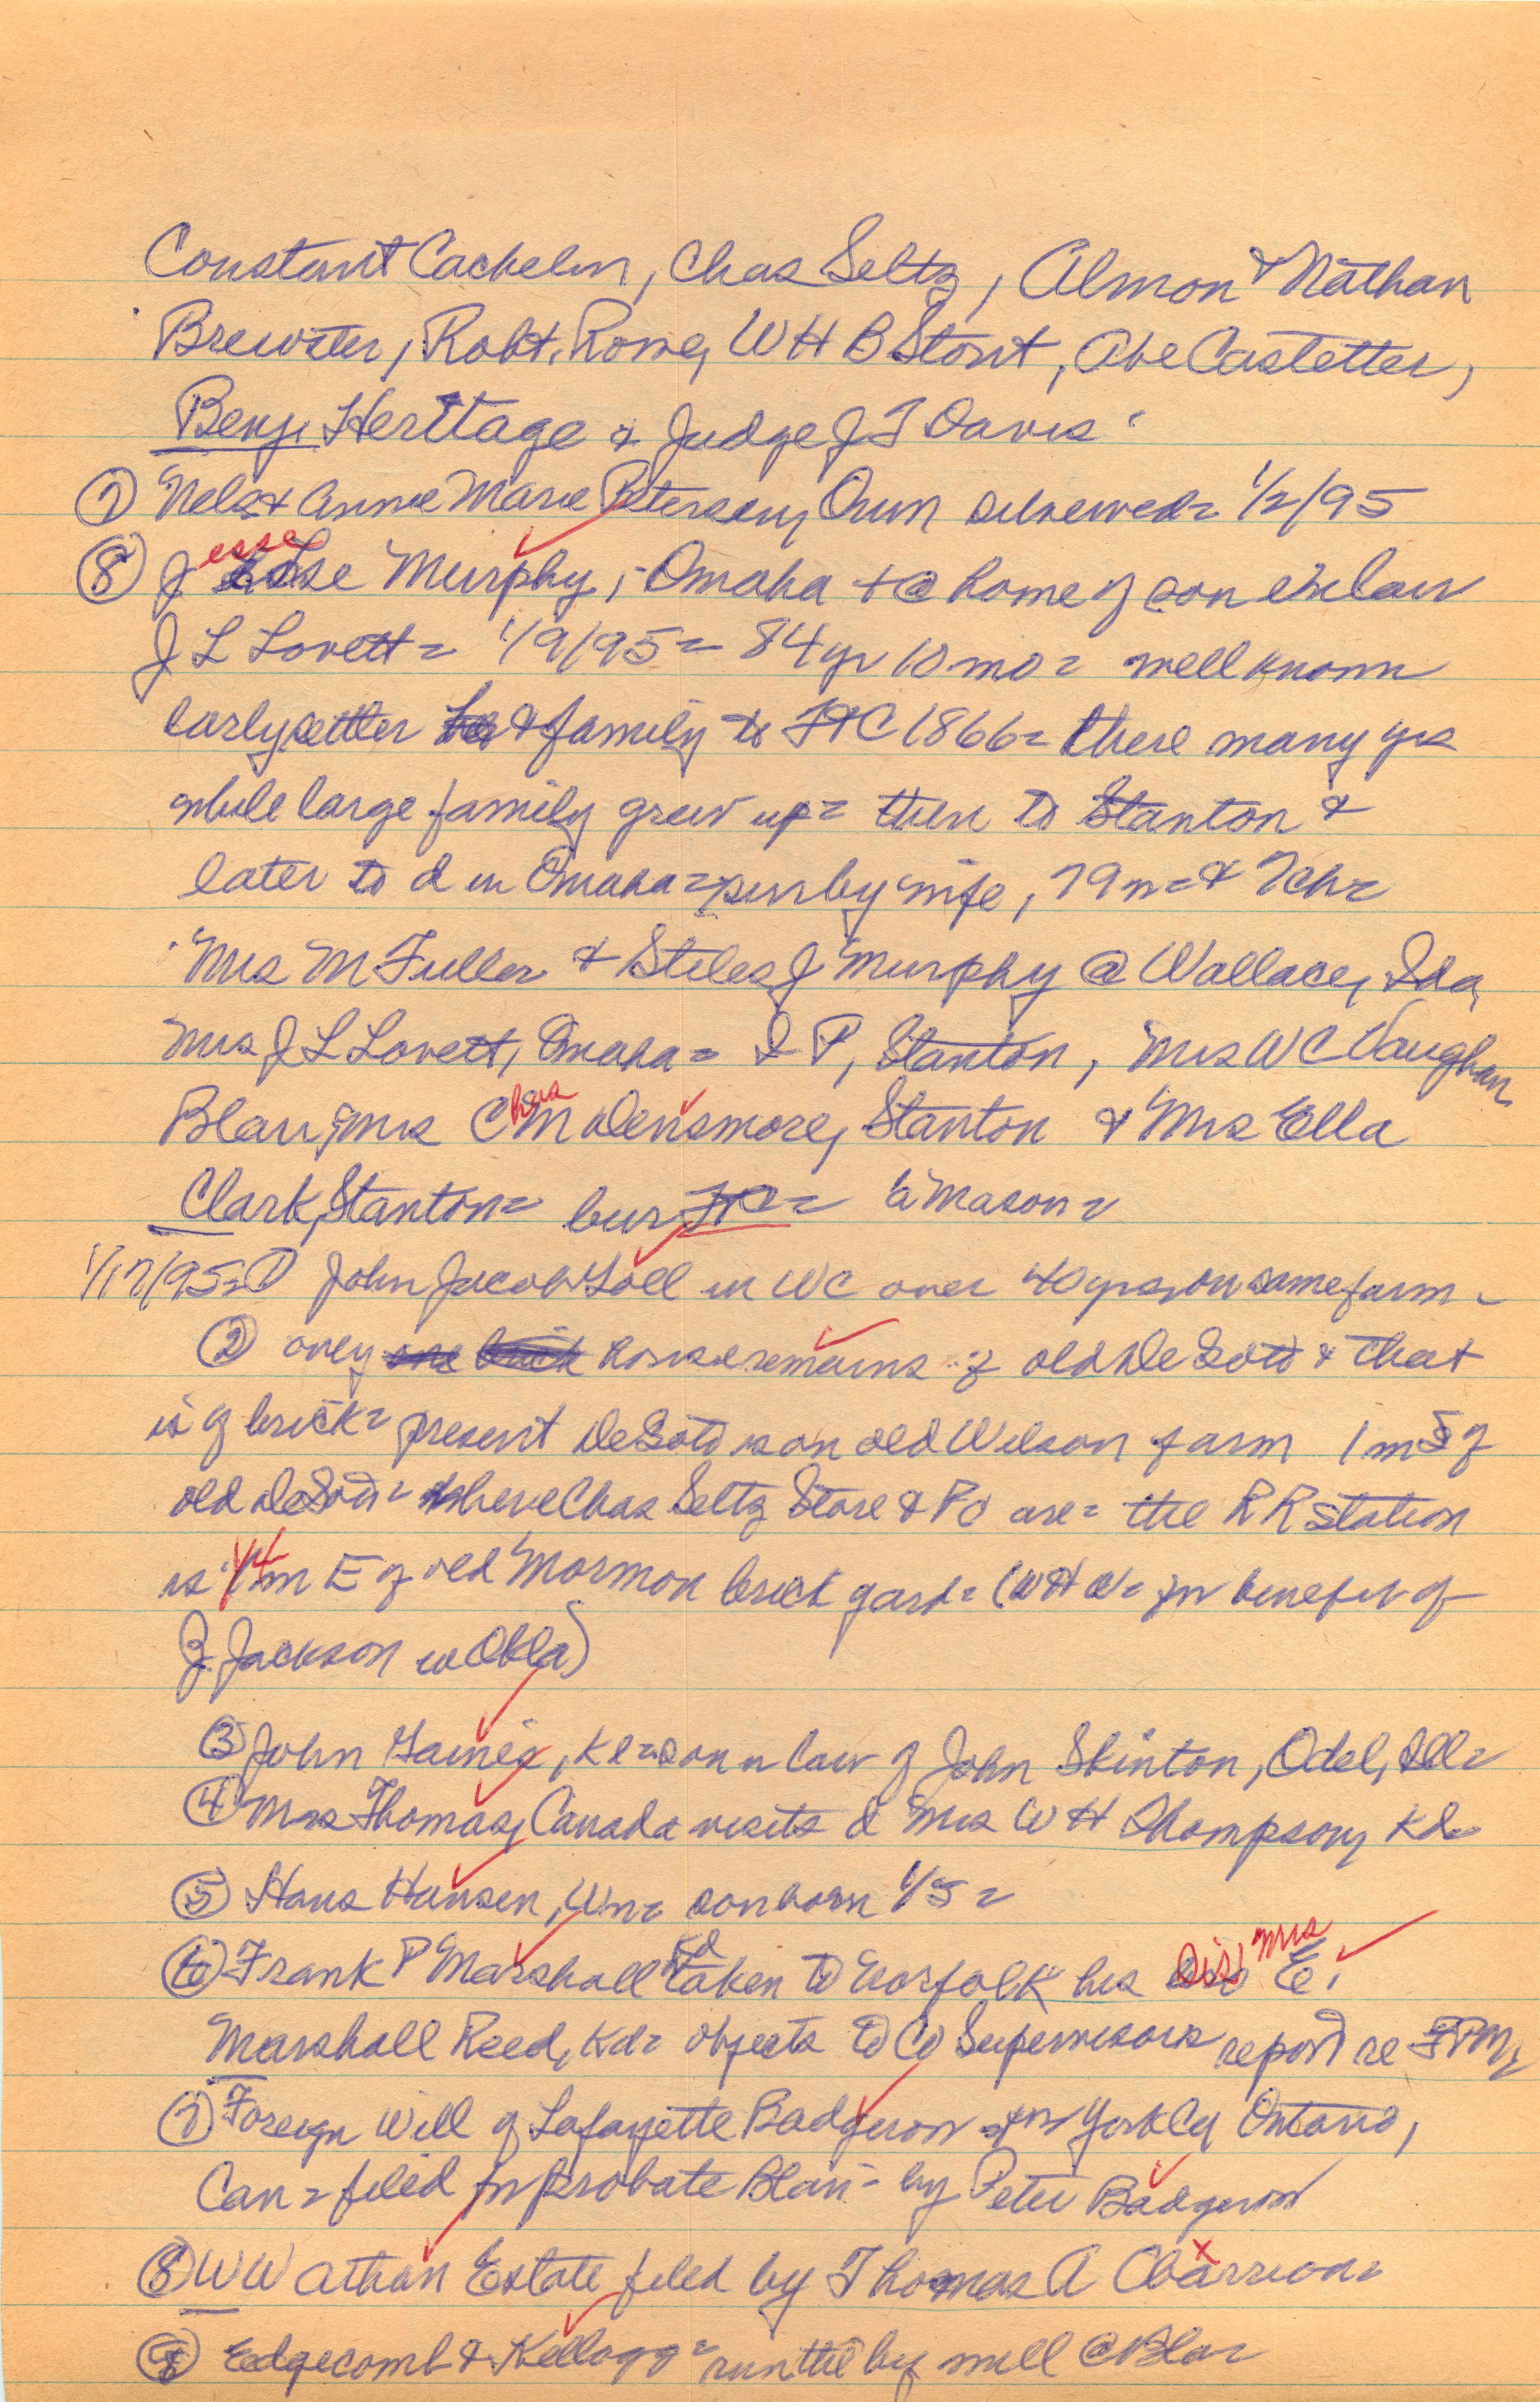 Constant Cachelin, Chas Seltz, Almon & Nathan
Brewster, Robt. Rowe, W H B Stout, Abe Castetter,
Benj. Herttage & Judge J T Davis
⑦ Nels & Annie Marie Petersen, Orum 1/2/95
⑧ Jesse Murphy, Omaha + @ home of son in law
J L Lovett = 1/9/95 = 84 yr 10 mo = well known
early settler & family to Ft C 1866 = there many yrs
while large family grew up = then to Stanton &
later to d in Omaha = sur by wife, 79 n = & 7 ch =
Mrs M Fuller & Stiles J Murphy @ Wallace, Ida,
Mrs J L Lovett, Omaha = I P, Stanton, Mrs W C Vaughan
Blair, Mrs Chas M Densmore, Stanton & Mrs Ella
Clark, Stanton = bur Ft C = a Mason =
1/17/95 = ① John Jacob Goll in WC over 40 yrs, on same farm -
② only house remains of old DeSoto & that
is of brick = present DeSoto is on old Wilson farm 1 m S of
old DeSoto = where Chas Seltz Store & PO are = the RR station
is 1/4 m E of old Mormon brick yard = (W H W = for benefit of
Z. Jackson in Okla)
③ John Gaines, Ke = son n law of John Skinton, Odel, Ill =
④ Mrs Thomas, Canada visits d Mrs W H Thompson, Kd
⑤ Hans Hansen, Wn = son born 1/5 =
⑥ Frank P Marshall Kd taken to Norfolk his Sis Mrs E.
Marshall Reed, Kd = objects to Co Supervisors report re FPM,
⑦ Foreign Will of Lafayette Badgerow York Cy Ontario,
Can = filed for probate Blair = by Peter Badgerow
⑧ W W Athan Estate filed by Thomas A Charrion =
⑨ Edgecomb & Kellogg = run the hy mill @ Blar